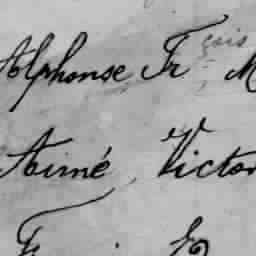 Alphonse Fr çois M
Aimé, Victor